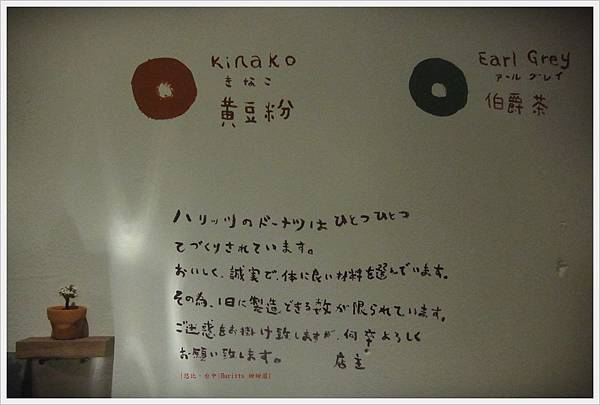 Kinako
きなこ
黄豆粉
Earl Grey
アールグレイ
伯爵茶
ハリッツのドーナツはひとつひとつ
てづくりされています。
おいしく、誠実で、体に良い材料を選んでいます。
その為、1日に製造できる数が限られています。
ご迷惑をお掛け致しますが、何卒よろしく
お願い致します。 店主